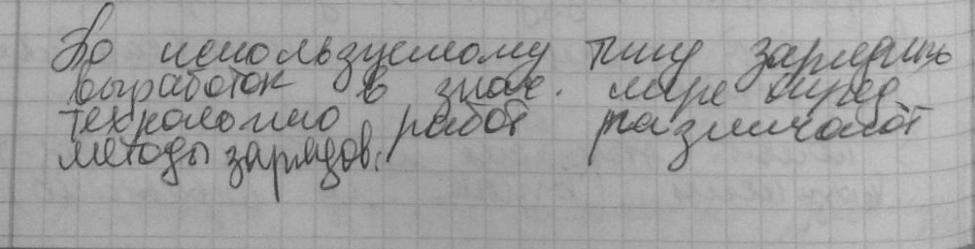 По используемому типу зарядных
выработок в знач. мере опред
технологию работ различают
методы зарядов.